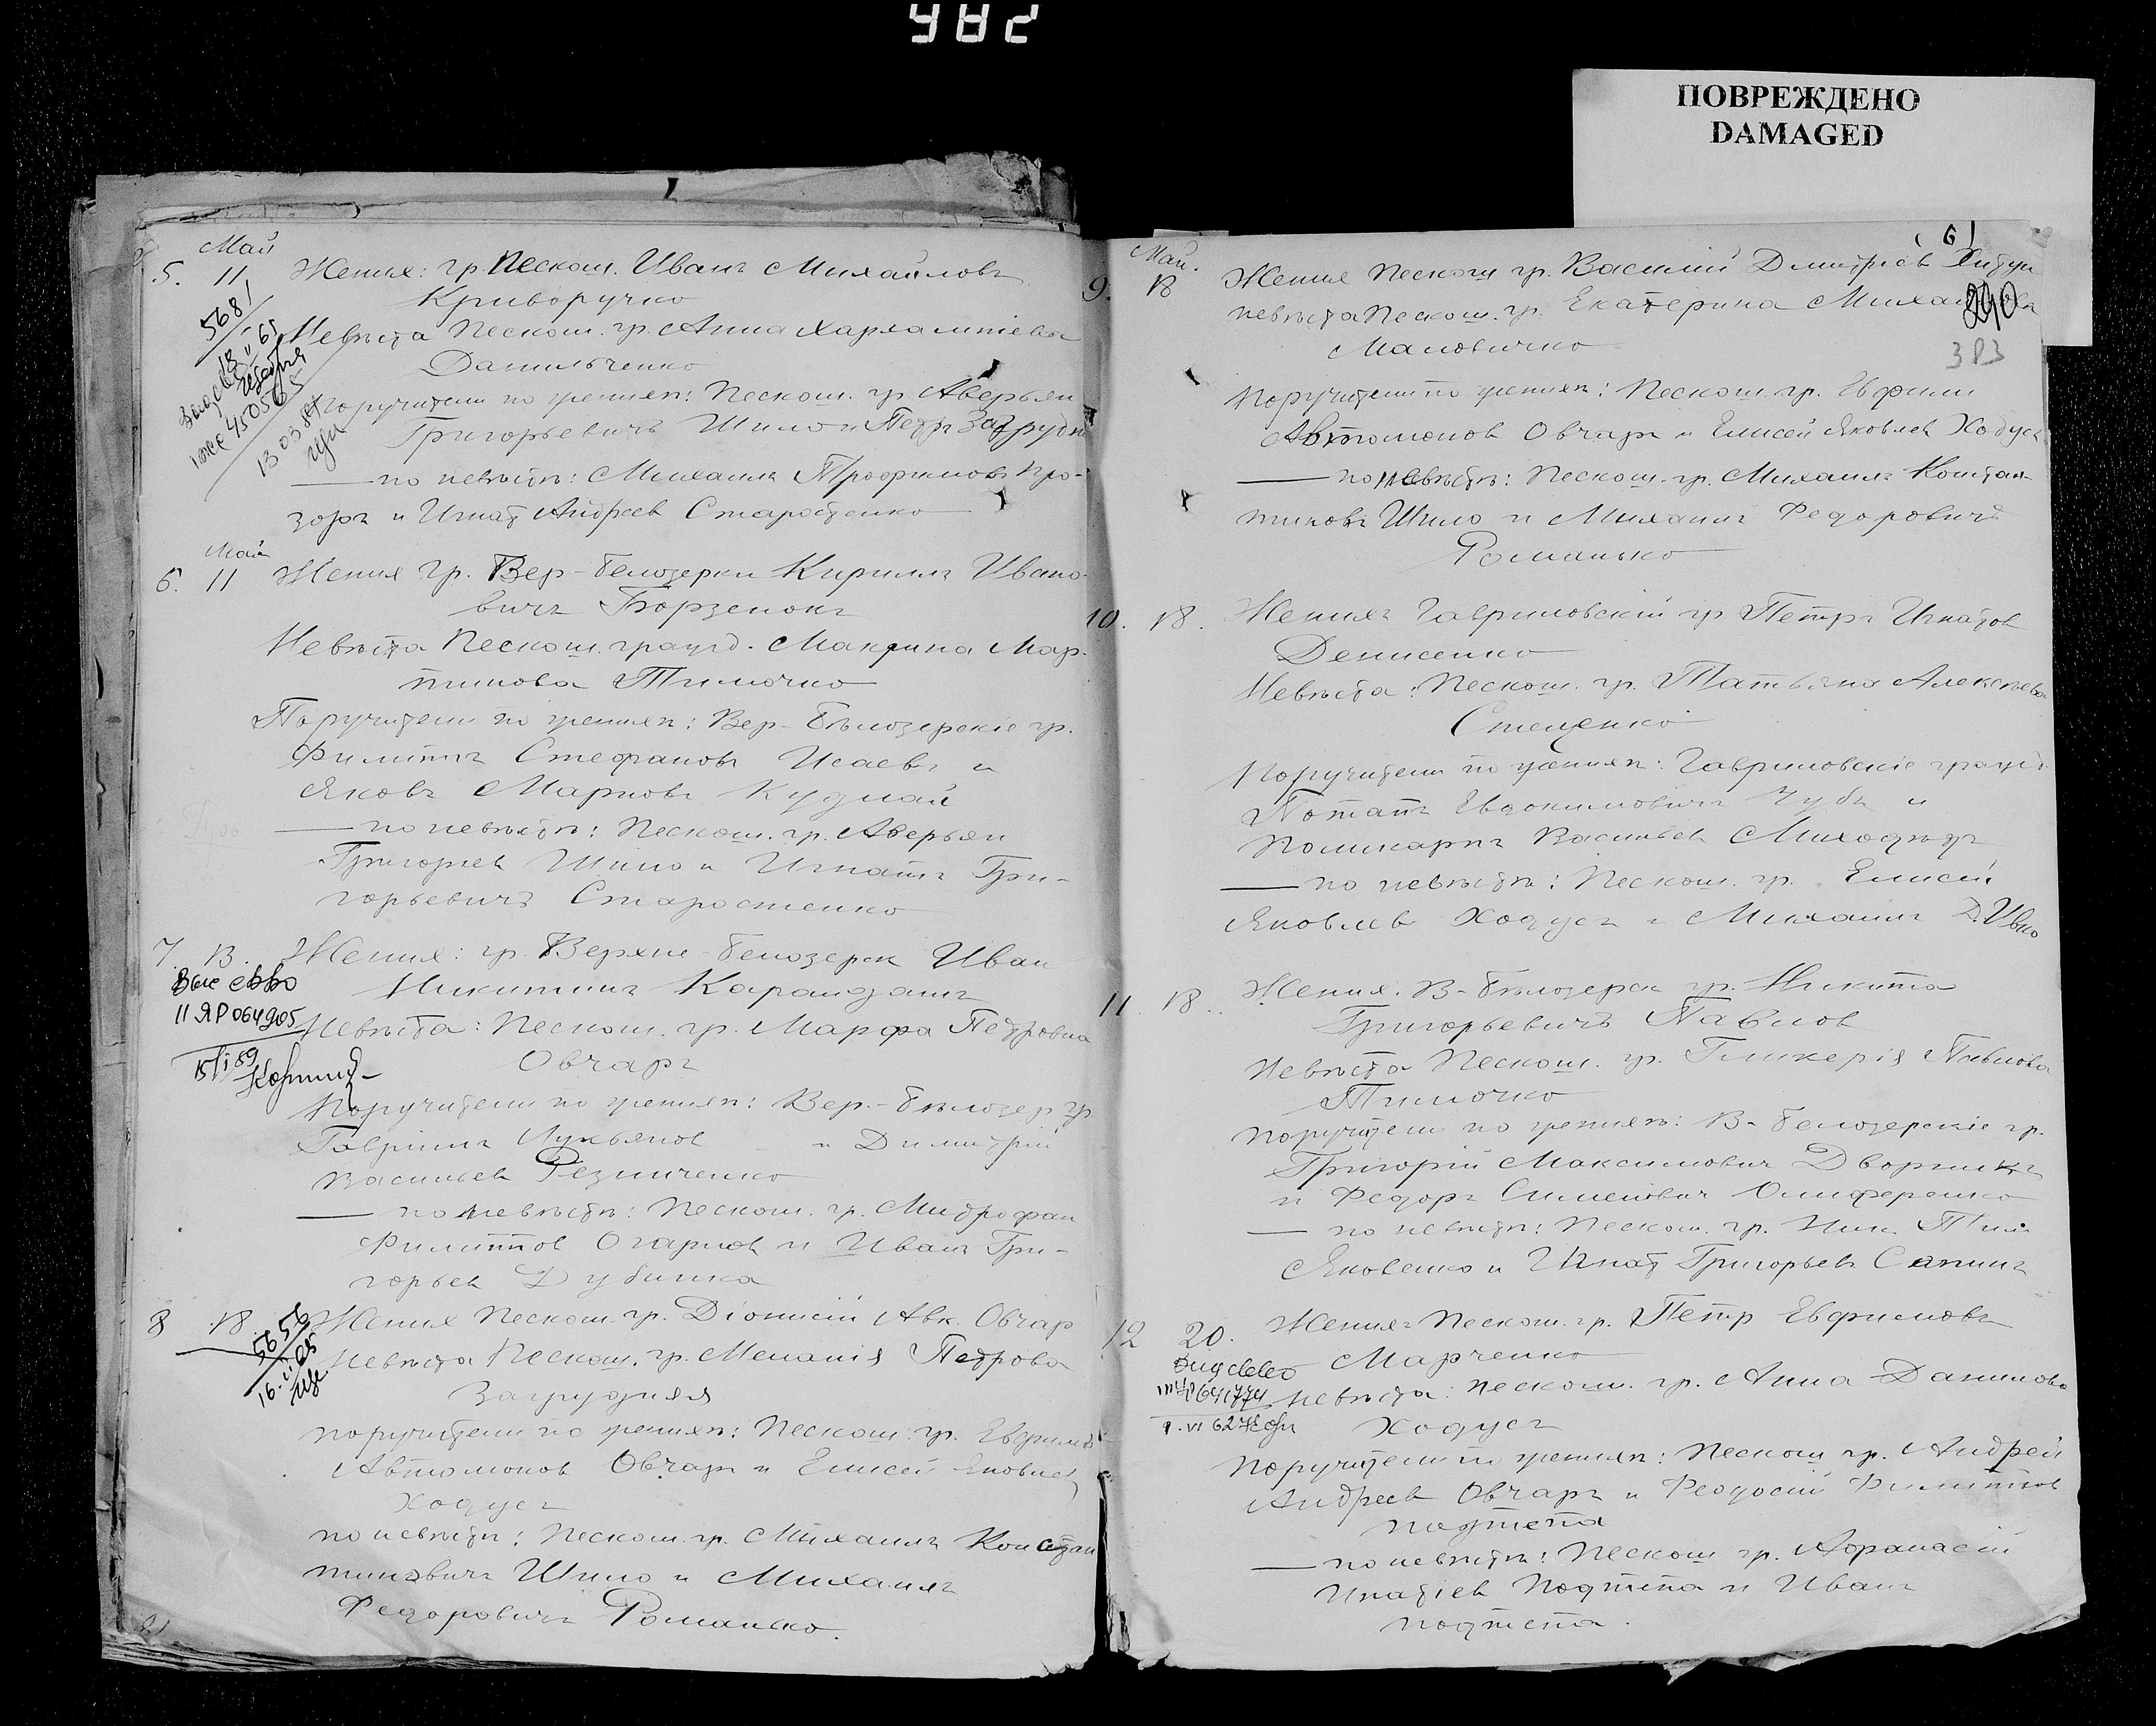 982
ПОВРЕЖДЕНО
DAMAGED
Май
5. 11 Жених: гр. Пескош. Иванъ Михайловъ
Криворучко
Невѣста Пескош. гр. Анна Харлампіева
Данильченко
поручители по женихѣ: Пескош. гр. Аверьян
Григорьевичъ Шило и Петръ Загрудн
— по невѣстѣ: Михаилъ Трофимовъ Про-
зоръ и Игнат Андреев Старостенко
5681
13 03 85
Май
6. 11 Жених гр. Вер-белозерки Кириллъ Ивано-
вичъ Борзенокъ
Невѣста Пескош. гражд. Макрина Мар-
тинова Тимочко
Поручители по женихѣ: Вер-Бѣлозерскіе гр.
Филиппъ Стефановъ Исаевъ и
Яковъ Марковъ Куднай
— по невѣстѣ: Пескош. гр. Аверьян
Григорьев Шило и Игнатъ Гри-
горьевичъ Старостенко
7. 13. Жених: гр. Верхне-белозерск Иван
Никитинъ Карандашъ
Невѣста: Пескош. гр. Марфа Петровна
Овчаръ
II ЯР 064905
Поручители по женихѣ: Вер.-бѣлозер гр.
Гавріилъ Лукьянов и Димитрій
Васильев Резниченко
— по невѣстѣ: Пескош. гр. Митрофан
Филиппов Огарков и Иванъ Гри-
горьев Дубинка
8 18. Жених Пескош. гр. Діонисій Авк. Овчар
Невѣста Пескош. гр. Меланія Петрова
Загрудняя
5656
поручители по женихѣ: Пескош. гр. Евфимъ
Автомонов Овчаръ и Елисей Яковлев
Ходусъ
по невѣстѣ: Пескош. гр. Михаилъ Констан
тиновичъ Шило и Михаилъ
Федоровичъ Романько.
61
Май.
9. 18 Жених Пескош гр. Василій Дмитріев
невѣста Пескош. гр. Екатерина Михайлова
Маловичко
290
383
Поручители по женихѣ: Пескош. гр. Евфим
Автомонов Овчаръ и Елисей Яковлев Ходус
— по невѣстѣ: Пескош. гр. Михаилъ Констан-
тиновъ Шило и Михаилъ Федоровичъ
Романько
10. 18. Женихъ Гавриловскій гр. Петръ Игнатов
Денисенко
Невѣста: Пескош. гр. Татьяна Алексѣева
Стеценко
Поручители по женихѣ: Гавриловскіе гражд.
Потапъ Евдокимовичъ Чубъ и
Поликарпъ Васильев
— по невѣстѣ: Пескош. гр. Елисей
Яковлев Ходусъ и Михаилъ Д. Ивко
11. 18. Жених. В-Бѣлозерск гр. Никита
Григорьевичъ Павлов
Невѣста Пескош. гр. Гликерія Павлова
Тимочко
поручители по женихѣ: В-белозерскіе гр.
Григорій Максимович Дворникъ
и Федоръ Симеонович Олиференко
— по невѣстѣ: Пескош. гр. Ник. Тим
Яковенко и Игнат Григорьевъ Сапинъ
12 20. Женихъ Пескош. гр. Петр Евфимовъ
Марченко
невѣста: Пескош. гр. Анна Данилова
Ходусъ
Поручители по женихѣ: Пескош гр. Андрей
Андреев Овчаръ и Феодосій Филиппов
Подтепа
— по невѣстѣ: Пескош гр. Афанасій
Игнатіев Подтепа и Иванъ
Подтепа.